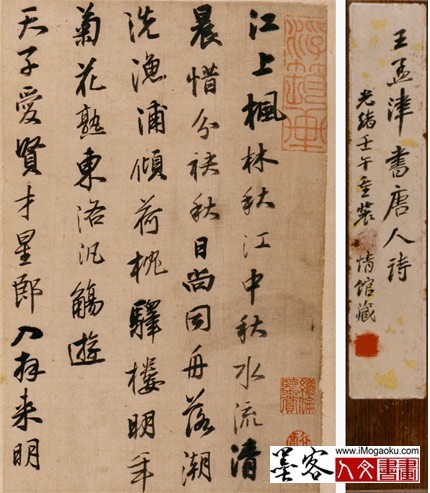 王孟津書唐人詩
光緒壬午重裝 情馆藏
江上楓林秋江中秋水流清
晨惜分袂秋日尚同舟落潮
洗漁浦傾荷枕驛樓明年
菊花熟東洛汎觴遊
天子愛賢才星郎入拜来明
墨客
www.iMogaoku.com
人文書畫